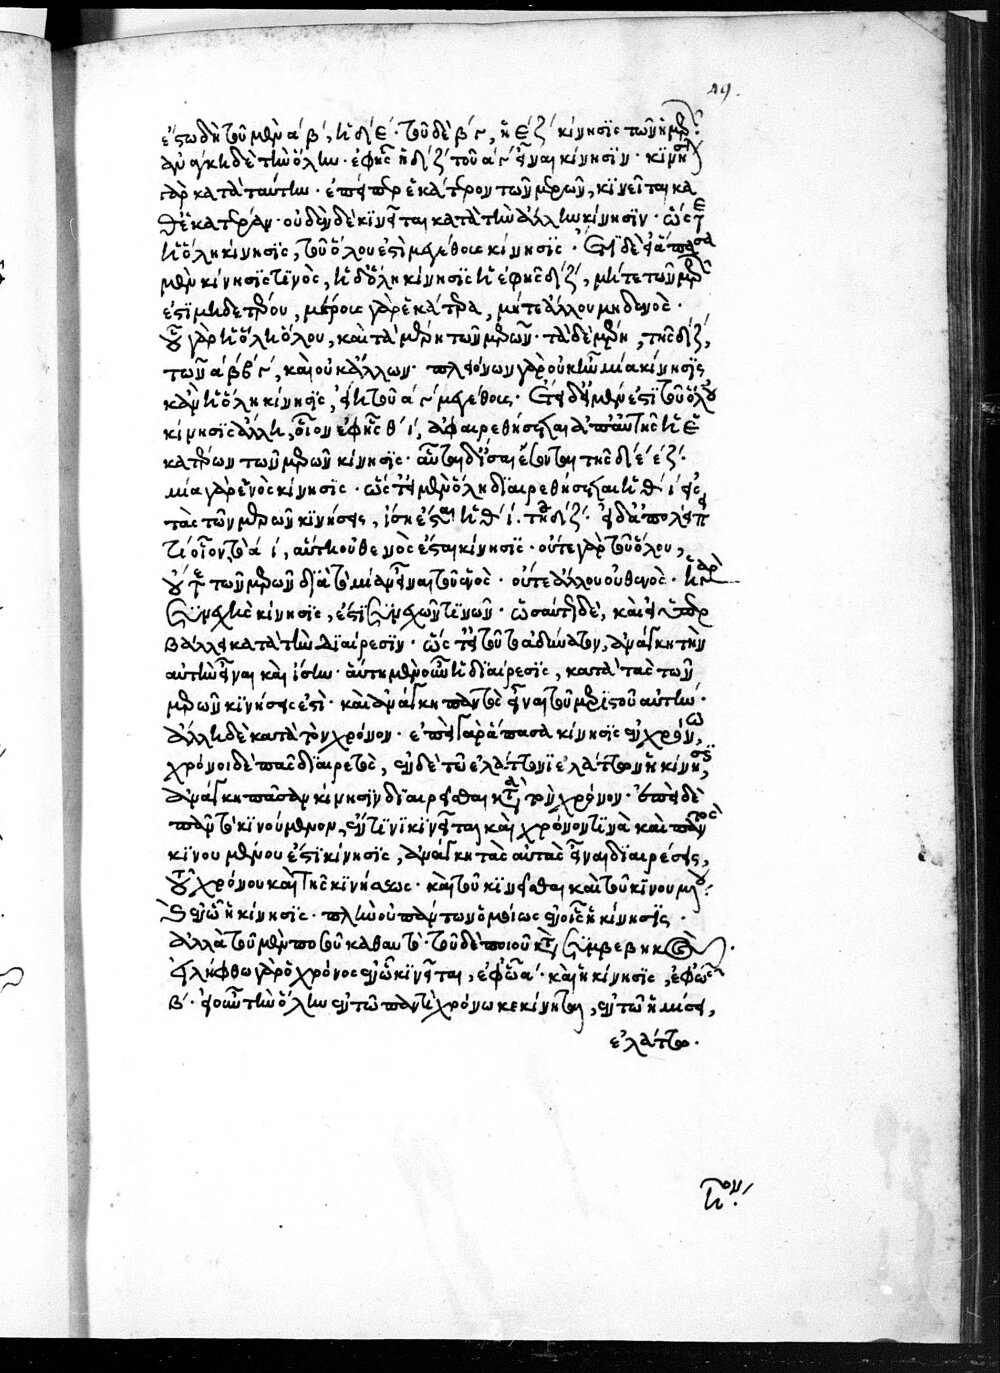 49.
ἔστω δὴ τοῦ μὲν α β, ἡ δ ε· τοῦ δὲ β γ, ἡ ε ζ κίνησις τῶν μερῶν·
ἀνάγκη δὲ τὴν ὅλην· ἐφ' ἧς ἡ δ ζ τοῦ α γ εἶναι κίνησιν· κινήσει
γὰρ κατὰ ταύτην· ἐπείπερ ἑκάτερον τῶν μερῶν, κινεῖται κα
θ' ἑκατέραν· οὐδὲν δὲ κινεῖται κατὰ τὴν ἄλλην κίνησιν· ὥστε
ἡ ὅλη κίνησις, τοῦ ὅλου ἐστὶ μεγέθους κίνησις· ἔτι δὲ εἰ ἅπασα
μὲν κίνησις τινὸς, ἡ δ' ὅλη κίνησις ἡ ἐφ' ἧς δ ζ, μήτε τῶν μερῶν
ἐστὶ μηδετέρου, μέρους γὰρ ἑκάτερα, μήτε ἄλλου μηδενὸς·
οὗ γὰρ ἡ ὅλη ὅλου, καὶ τὰ μέρη τῶν μερῶν· τὰ δὲ μέρη, τῆς δ ζ,
τῶν α β β γ, καὶ οὐκ ἄλλων· πλειόνων γὰρ οὐκ ἦν μία κίνησις
κἂν ἡ ὅλη κίνησις, εἴη τοῦ α γ μεγέθους· ἔτι δ' εἰ μέν ἐστι τοῦ ὅλου
κίνησις ἄλλη, οἷον ἐφ' ἧς θ ι, ἀφαιρεθήσεται ἀπ' αὐτῆς ἡ ἑ
κατέρων τῶν μερῶν κίνησις· αὗται δ' ἴσαι ἔσονται τῆς δ ε ε ζ·
μία γὰρ ἑνὸς κίνησις· ὥστ' εἰ μὲν ὅλη διαιρεθήσεται ἡ θ ι εἰς
τὰς τῶν μερῶν κινήσεις, ἴση ἔσται ἡ θ ι τῇ δ ζ· εἰ δ' ἀπολείπει
τι οἷον τὸ κ ι, αὕτη οὐθενὸς ἔσται κίνησις· οὔτε γὰρ τοῦ ὅλου,
οὔτε τῶν μερῶν διὰ τὸ μίαν εἶναι τοῦ ἑνὸς· οὔτε ἄλλου οὐθενὸς· ἡ γὰρ
συνεχὴς κίνησις, ἐστὶ συνεχῶν τινῶν· ὡσαύτως δὲ, καὶ εἰ ὑπερ
βάλλει κατὰ τὴν διαίρεσιν· ὥστ' εἰ τοῦτο ἀδύνατον, ἀνάγκη τὴν
αὐτὴν εἶναι καὶ ἴσην· αὕτη μὲν οὖν ἡ διαίρεσις, κατὰ τὰς τῶν
μερῶν κινήσεις ἐστὶ· καὶ ἀνάγκη παντὸς εἶναι τοῦ μεριστοῦ αὐτὴν·
ἄλλη δὲ κατὰ τὸν χρόνον· ἐπεὶ γὰρ ἅπασα κίνησις ἐν χρόνῳ,
χρόνος δὲ πᾶς διαιρετὸς, ἐν δὲ τῷ ἐλάττονι ἐλάττων ἡ κίνησις,
ἀνάγκη πᾶσαν κίνησιν διαιρεῖσθαι κατὰ τὸν χρόνον· ἐπεὶ δὲ
πᾶν τὸ κινούμενον, ἔν τινι κινεῖται καὶ χρόνον τινὰ καὶ παντὸς
κινουμένου ἐστὶ κίνησις, ἀνάγκη τὰς αὐτὰς εἶναι διαιρέσεις,
τοῦ χρόνου καὶ τῆς κινήσεως· καὶ τοῦ κινεῖσθαι καὶ τοῦ κινουμένου·
καὶ ἐν ᾧ ἡ κίνησις· πλὴν οὐ πάντων ὁμοίως ἐν οἷς ἡ κίνησις·
ἀλλὰ τοῦ μὲν ποσοῦ καθ' αὑτὸ· τοῦ δὲ ποιοῦ κατὰ συμβεβηκός·
εἰλήφθω γὰρ ὁ χρόνος ἐν ᾧ κινεῖται, ἐφ' ᾧ α· καὶ ἡ κίνησις, ἐφ' ᾧ
β· εἰ οὖν τὴν ὅλην ἐν τῷ παντὶ χρόνῳ κεκίνηται, ἐν τῷ ἡμίσει,
ἐλάττω·